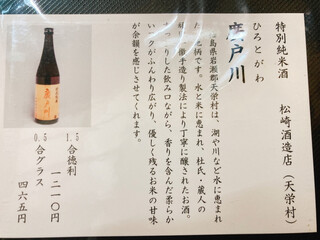 特別純米酒
ひろとがわ
廣戸川
松崎酒造店（天栄村）
島県岩瀬郡天栄村は、湖や川など水に恵まれ
地です。水と米に恵まれ、杜氏・蔵人の
手造り製法により丁寧に醸されたお酒。
りした飲み口ながら、香りを含んだ柔らか
がふんわり広がり、優しく残るお米の甘味
が余韻を感じさせてくれます。
1.5合徳利
一二一〇円
0.5合グラス
四六五円
廣戸川